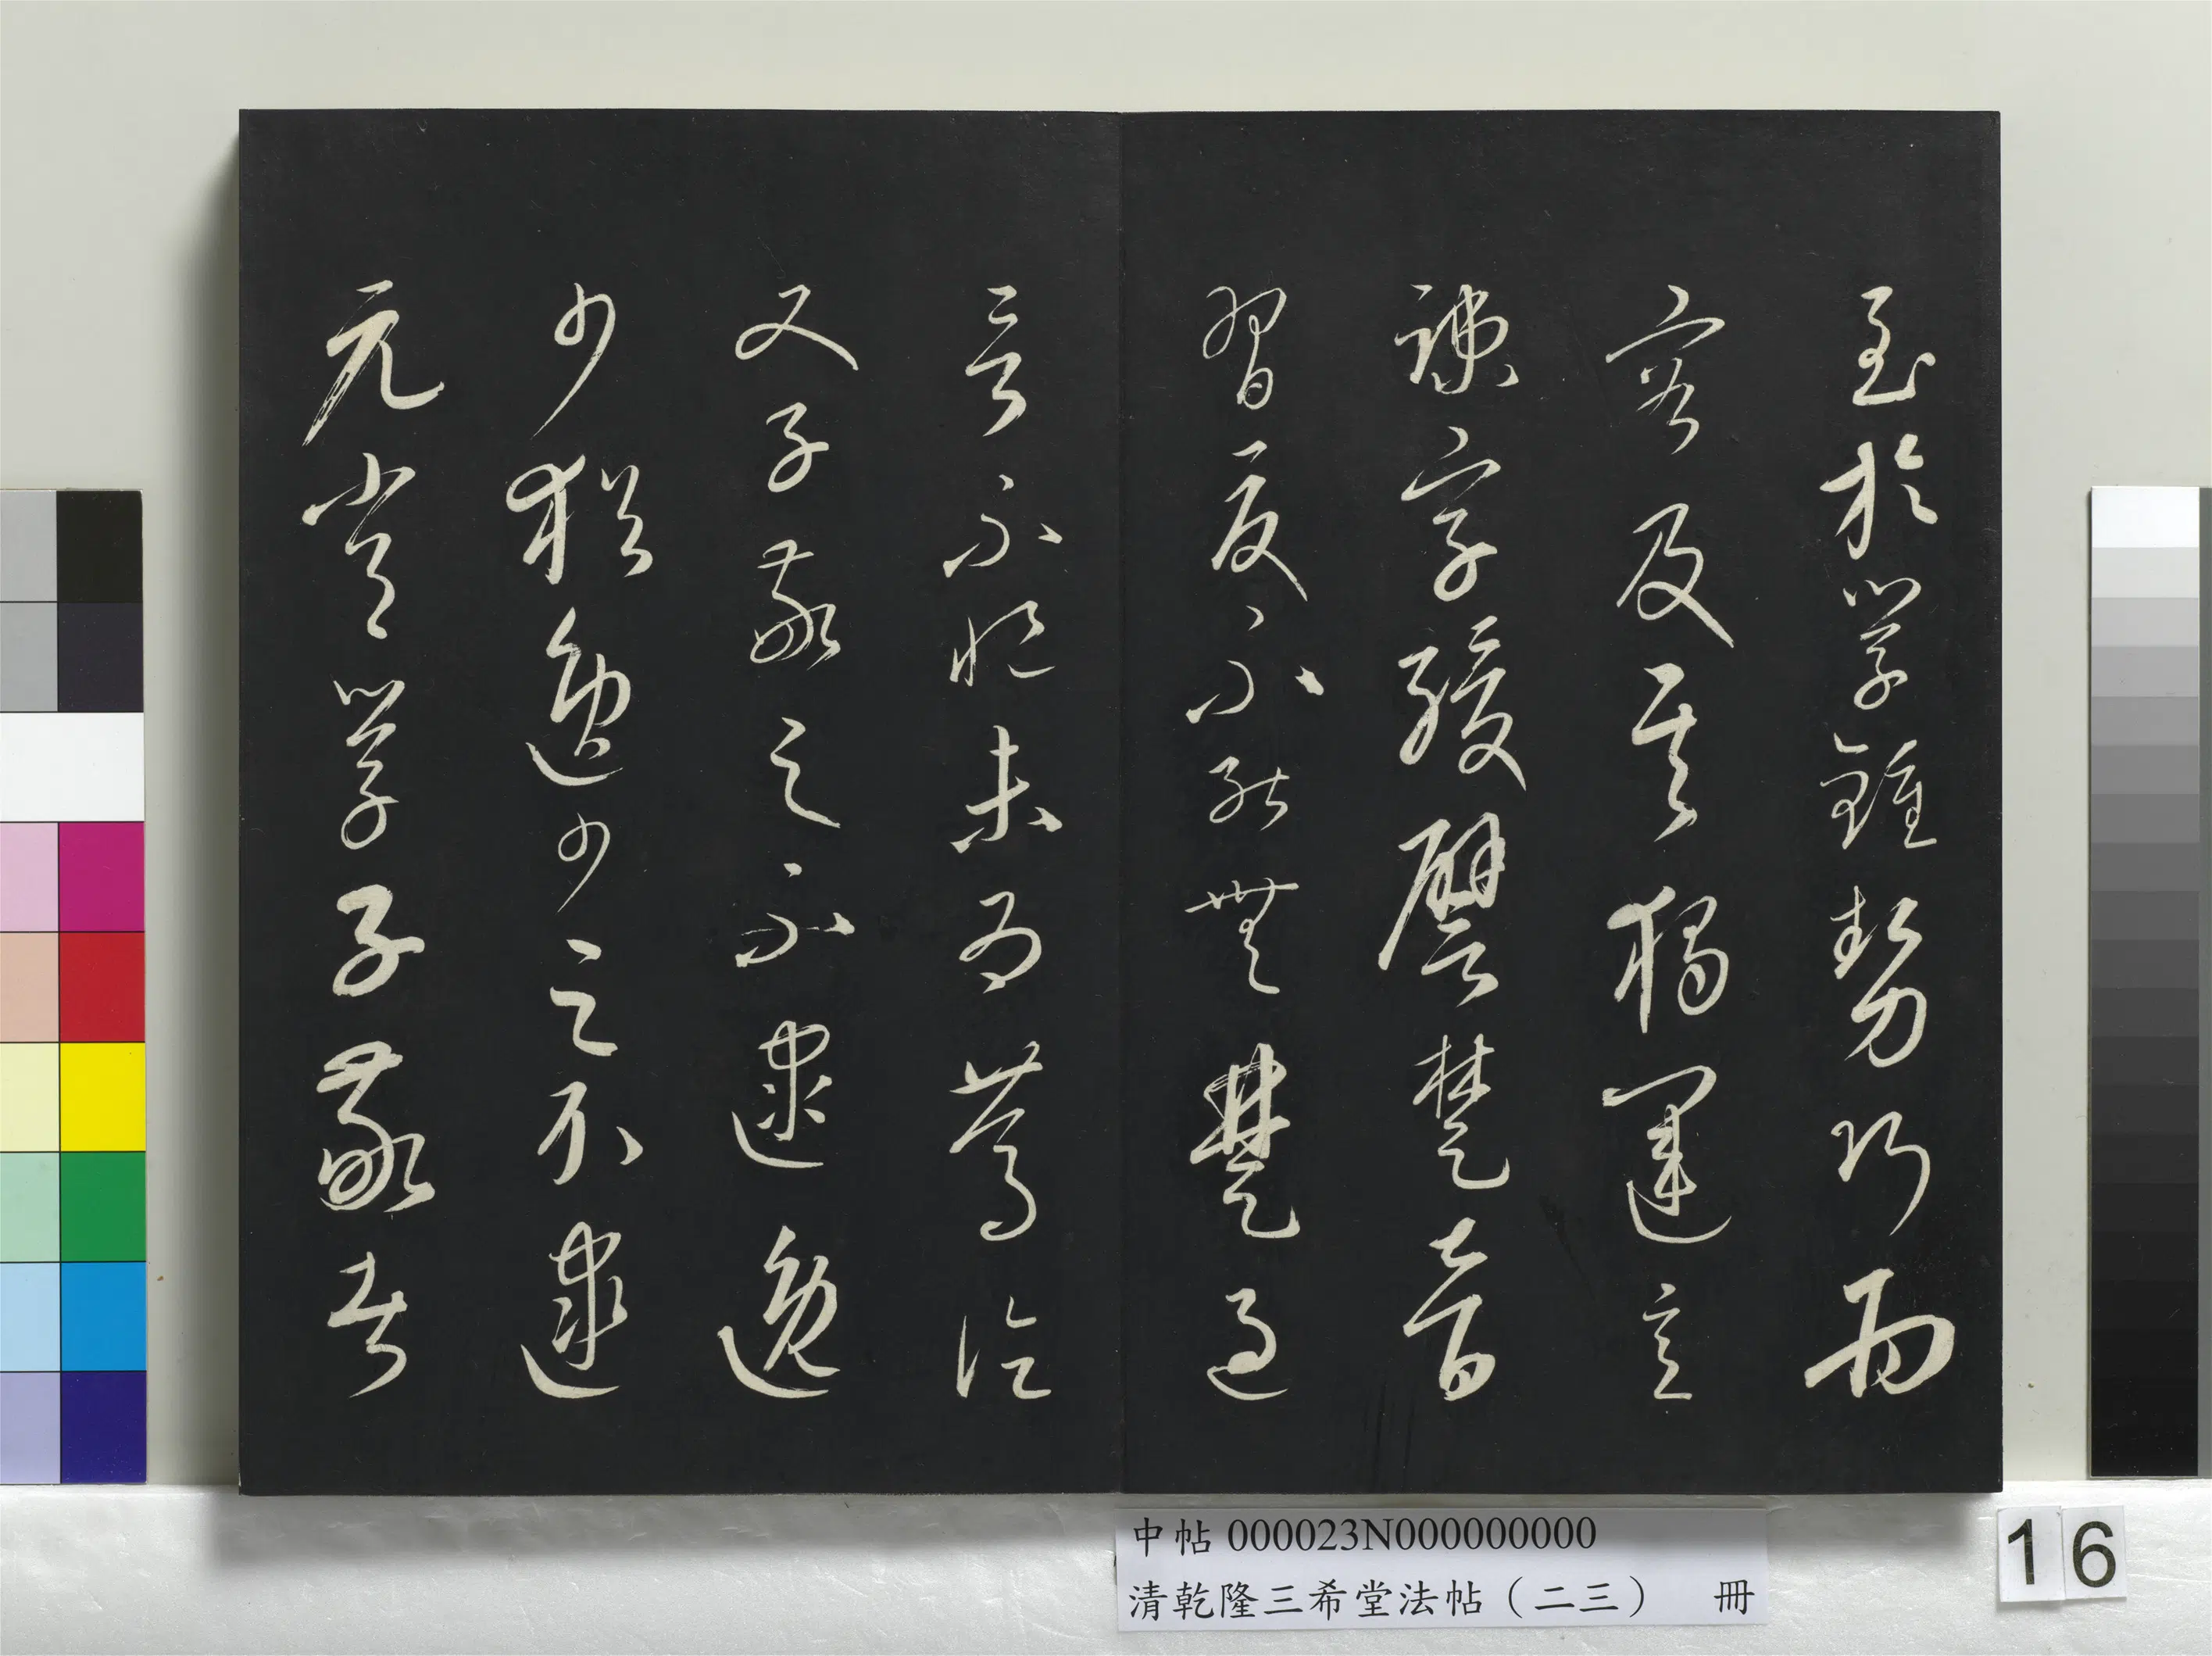 至於學鍾勢巧而
密及其獨運意
疎字緩譬楚音
習夏不能無楚過
言不悒未為篤論
又子敬之不逮逸
少猶逸少之不逮
元常學子敬者
中帖 000023N000000000
清乾隆三希堂法帖（二三） 冊
16